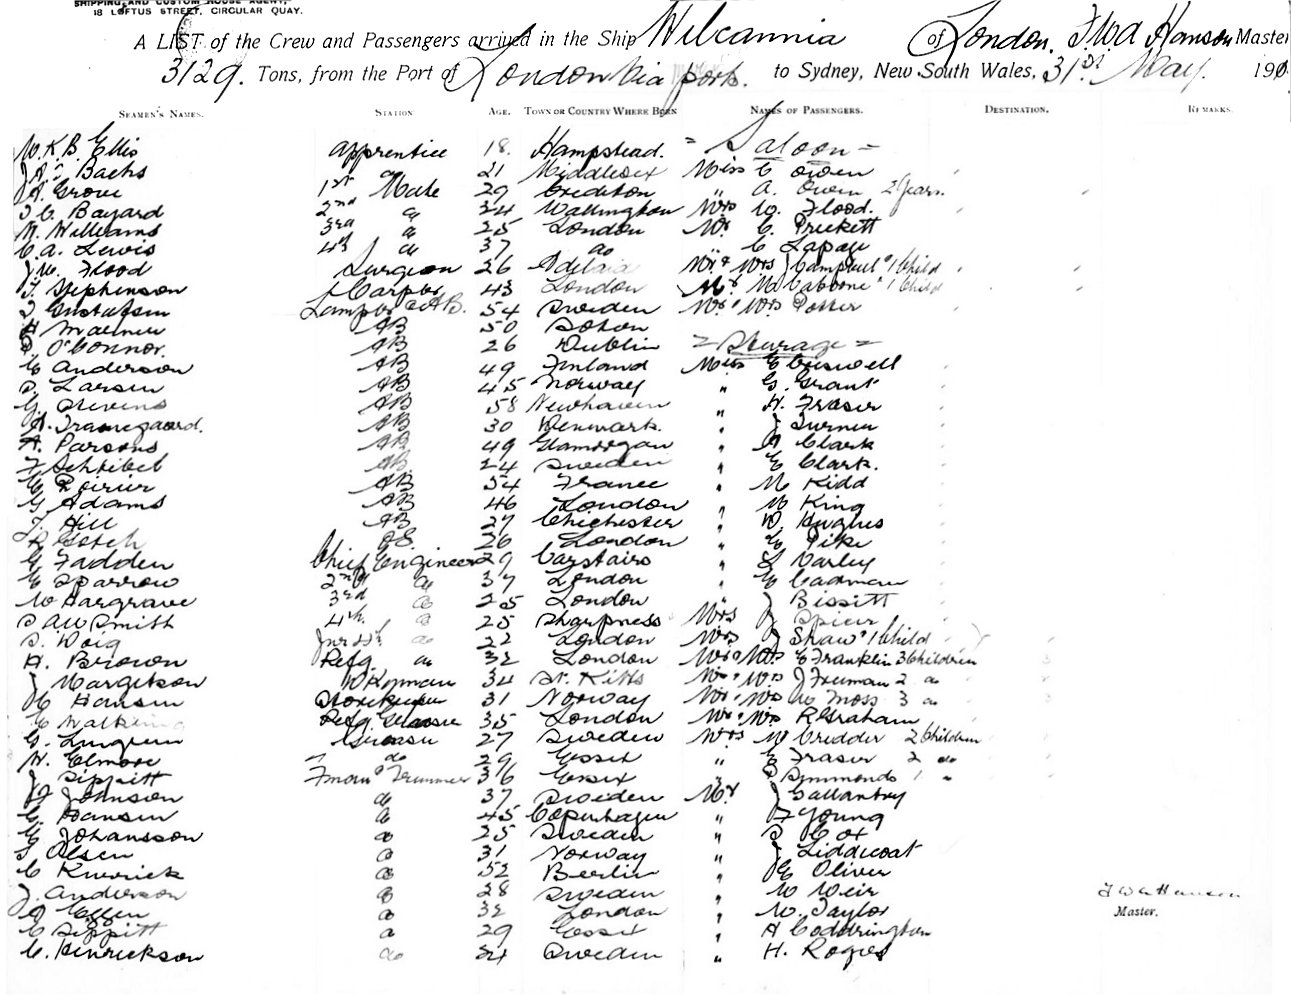 SHIPPING AND CUSTOM HOUSE AGENT,
18 LOFTUS STREET, CIRCULAR QUAY.
A LIST of the Crew and Passengers arrived in the Ship Wilcannia of London. Master
3129. Tons, from the Port of London via ports. to Sydney, New South Wales, 31st May. 190
SEAMEN'S NAMES. STATION AGE. TOWN OR COUNTRY WHERE BORN NAMES OF PASSENGERS. DESTINATION. REMARKS.
W.K.B. Ellis apprentice 18. Hampstead. = Saloon =
Bachs do 21 Middlesex Miss C Owen
A. Grove 1st Mate 29 Crediton " A. Owen 2 Years
Bayard 2nd do 34 Wallington Mrs W. Flood.
Williams 3rd do 25 London Mr C. Prickett
C.A. Lewis 4th do 37 do " C Lapage
J.W. Flood Surgeon 26 Adelaid Mr & Mrs J Campbell & 1 Child
Stephenson Carptr 43 London 1 Child
Gustafson Lamptr & AB. 54 Sweden Mr & Mrs Potter
AB 50 Soton
O'Connor. AB 26 Dublin = Steerage =
C Anderson AB 49 Finland Miss E
Larsen AB 45 Norway " G. Grant
G. Stevens AB 58 Newhaven " H. Fraser
AB 30 Denmark. " J Turner
A. Parsons AB 49 Glamorgan " A Clark
AB 24 Sweden " E Clark.
Poirier AB 54 France " M Kidd
G Adams AB 46 London " M King
F. Hill AB 27 Chichester " D. Hughes
OS. 26 London " Pike
G Fadden Chief Engineer 29 Carstairs " L Varley
E Sparrow 2nd do 37 London " E Cadman
W Hargrave 3rd do 25 London " J Bissitt
Smith 4th do 25 Sharpness Mrs J Spicer
D. Doig Jnr 4th do 22 London Mrs J Shaw & 1 Child
H. Brown Refg. do 32 London Mr & Mrs E Franklin 3 Children
J Margetson Dkyman 34 St. Kitts Mr & Mrs J Freeman 2 do
Hansen Storekeeper 31 Norway Mr & Mrs W Moss 3 do
C Watkins Refg Greaser 35 London Mr & Mrs R Graham
Greaser 27 Sweden Mrs W Credder 2 Children
W. Elmore do 29 Essex " E Fraser 2 do
J Sippitt Fman & Trimmer 36 Essex " Simmonds 1 "
Johnson do 37 Sweden Mr J Gallantry
C. Hansen do 45 Copenhagen " F Young
Johansson do 25 Sweden " S Cox
Olsen do 31 Norway " J Liddicoat
C do 52 Berlin " E Oliver
J. Anderson do 28 Sweden " W Weir
do 32 London " W. Taylor
C Sippitt do 29 Essex " A Coddrington
C. Henrickson do 34 Sweden " H. Rogers
Master.